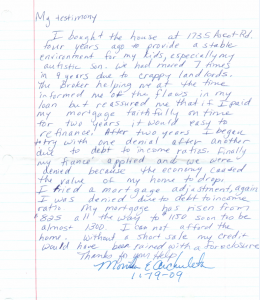 My testimony
I bought the house at 1735 Rd.
four years ago to provide a stable
environment for my kids, especially my
autistic son. We had moved 7 times
in 9 years due to crappy landlords.
The Broker helping me at the time
informed me of the flaws in my
loan but reassured me that if I paid
my mortgage faithfully on time
for two years it would easy to
refinance. After two years I began
to try with one denial after another
due to debt to income ratio. Finally
my fiance' applied and we were
denied because the economy caused
the value of my home to drop.
I tried a mortgage adjustment, again
I was denied due to debt to income
ratio. My mortgage has risen from
825 all the way to 1150 soon to be
almost 1300. I can not afford the
home. Without a short sale my credit
would have been ruined with a foreclosure
Thanks for your help!
11-19-09